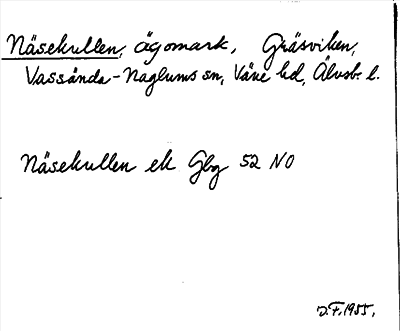 Näsekullen, ägomark, Gräsviken,
Vassända-Naglums sn, Väne hd, Älvsb. l.
Näsekullen ek Gbg 52 NO
J.F. 1955.